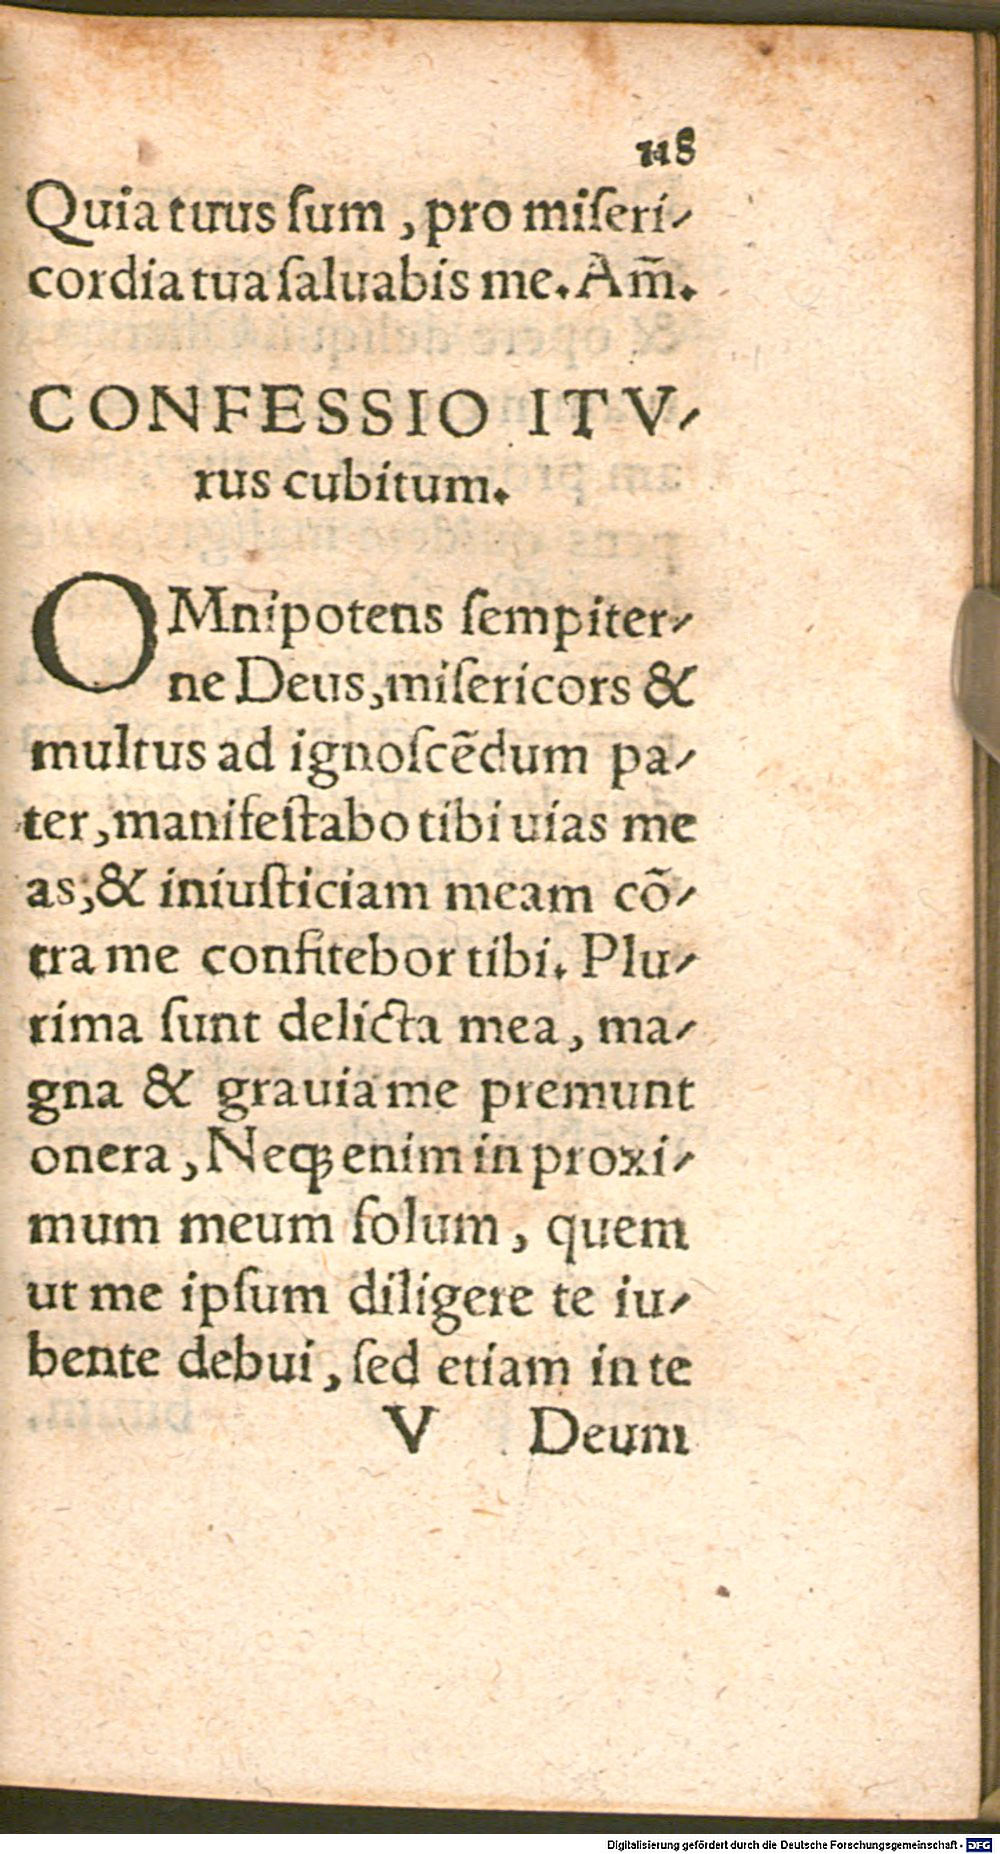 118
Quia tuus ſum , pro miſeri⸗
cordia tua ſaluabis me. Am̃.
CONFESSIO ITV⸗
rus cubitum.
OMnipotens ſempiter⸗
ne Deus, miſericors &
multus ad ignoſcẽdum pa⸗
ter, manifeſtabo tibi uias me
as, & iniuſticiam meam cõ⸗
tra me confitebor tibi. Plu⸗
rima ſunt delicta mea, ma⸗
gna & grauia me premunt
onera , Neqꝫ enim in proxi⸗
mum meum ſolum , quem
ut me ipſum diligere te iu⸗
bente debui , ſed etiam in te
V Deum
Digitalisierung gefördert durch die Deutsche Forschungsgemeinschaft - DFG